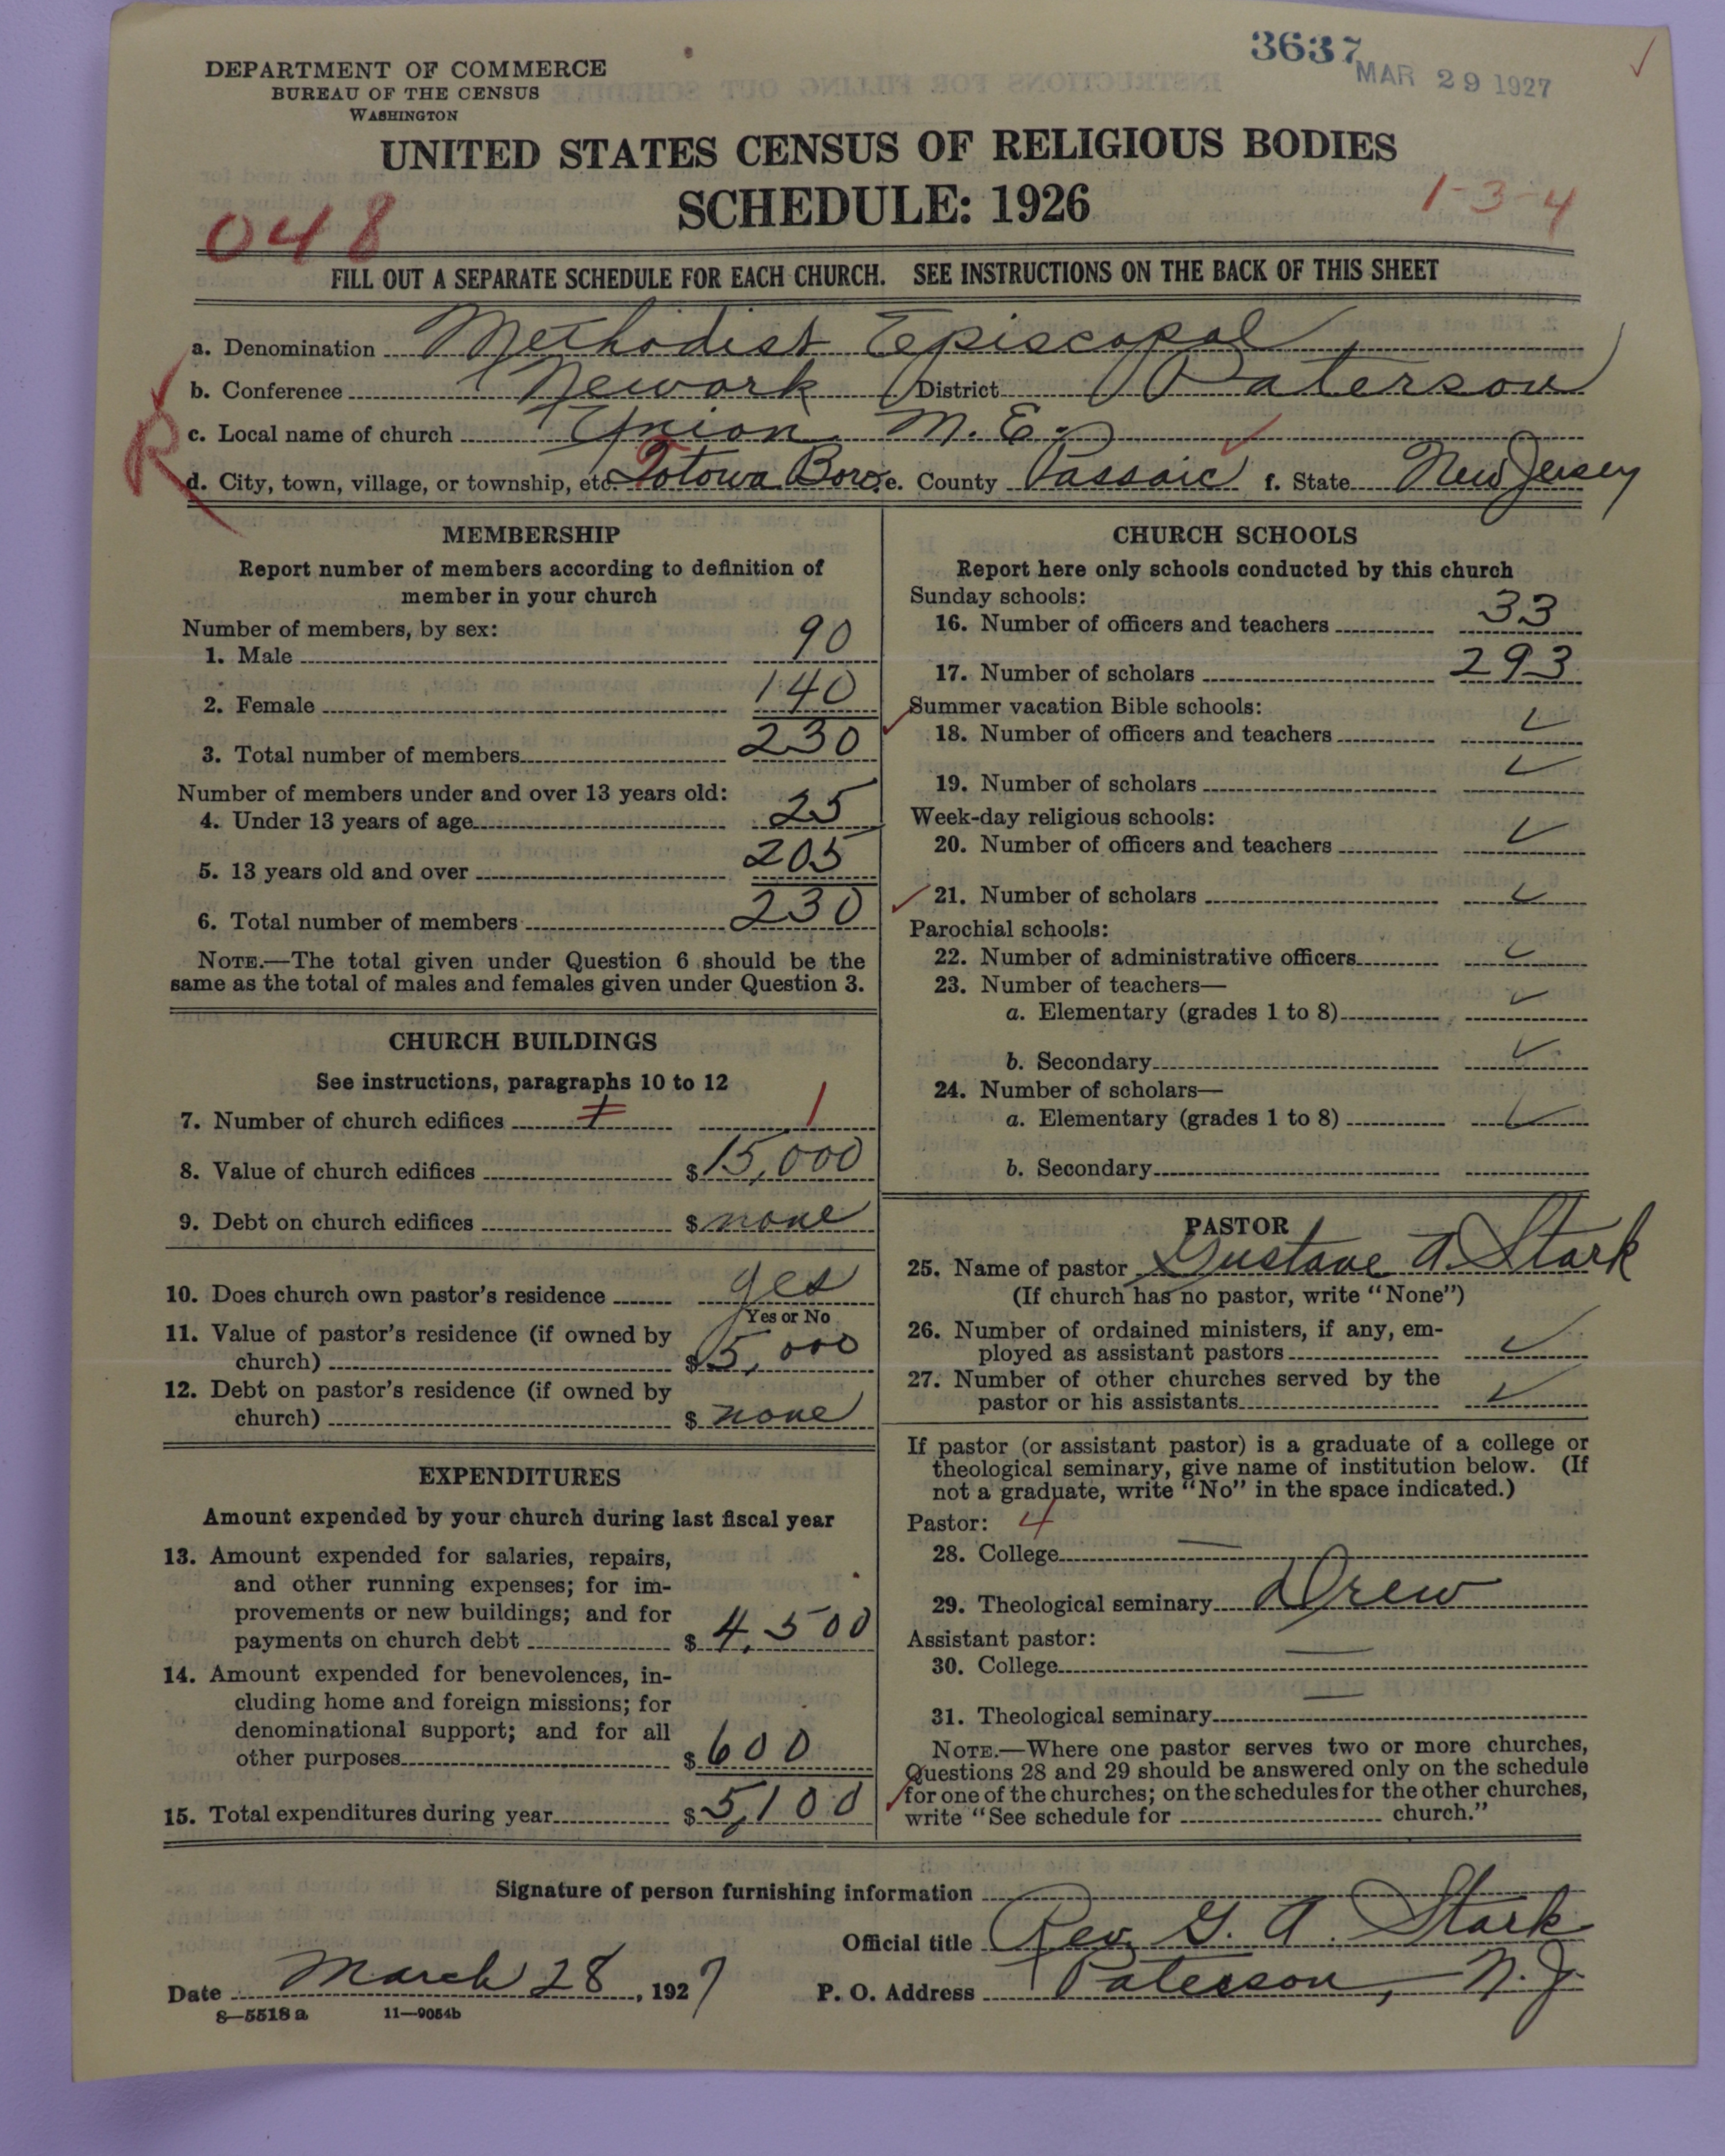 3637
MAR 29 1927
DEPARTMENT OF COMMERCE
BUREAU OF THE CENSUS
WASHINGTON
UNITED STATES CENSUS OF RELIGIOUS BODIES
SCHEDULE: 1926
048
1-3-4
FILL OUT A SEPARATE SCHEDULE FOR EACH CHURCH. SEE INSTRUCTIONS ON THE BACK OF THIS SHEET
a. Denomination Methodist Episcopal
b. Conference Newark District Paterson
c. Local name of church Union M. E.
R
d. City, town, village, or township, etc. Totowa Boro. e. County Passaic f. State New Jersey
MEMBERSHIP
Report number of members according to definition of
member in your church
Number of members, by sex:
1. Male 90
2. Female 140
3. Total number of members 230
Number of members under and over 13 years old:
4. Under 13 years of age 25
5. 13 years old and over 205
6. Total number of members 230
NOTE.—The total given under Question 6 should be the
same as the total of males and females given under Question 3.
CHURCH BUILDINGS
See instructions, paragraphs 10 to 12
7. Number of church edifices 1 1
8. Value of church edifices $ 15,000
9. Debt on church edifices $ none
10. Does church own pastor's residence yes
Yes or No
11. Value of pastor's residence (if owned by
church) $ 5,000
12. Debt on pastor's residence (if owned by
church) $ none
EXPENDITURES
Amount expended by your church during last fiscal year
13. Amount expended for salaries, repairs,
and other running expenses; for im-
provements or new buildings; and for
payments on church debt $ 4,500
14. Amount expended for benevolences, in-
cluding home and foreign missions; for
denominational support; and for all
other purposes $ 600
15. Total expenditures during year $ 5,100
CHURCH SCHOOLS
Report here only schools conducted by this church
Sunday schools:
16. Number of officers and teachers 33
17. Number of scholars 293
Summer vacation Bible schools:
18. Number of officers and teachers
19. Number of scholars
Week-day religious schools:
20. Number of officers and teachers
21. Number of scholars
Parochial schools:
22. Number of administrative officers
23. Number of teachers—
a. Elementary (grades 1 to 8)
b. Secondary
24. Number of scholars—
a. Elementary (grades 1 to 8)
b. Secondary
PASTOR
25. Name of pastor Gustave A. Stark
(If church has no pastor, write "None")
26. Number of ordained ministers, if any, em-
ployed as assistant pastors
27. Number of other churches served by the
pastor or his assistants
If pastor (or assistant pastor) is a graduate of a college or
theological seminary, give name of institution below. (If
not a graduate, write "No" in the space indicated.)
Pastor: 4
28. College —
29. Theological seminary Drew
Assistant pastor:
30. College —
31. Theological seminary —
NOTE.—Where one pastor serves two or more churches,
Questions 28 and 29 should be answered only on the schedule
for one of the churches; on the schedules for the other churches,
write "See schedule for church."
Signature of person furnishing information
Official title Rev. G. A. Stark
Date March 28, 1927 P. O. Address Paterson, N. J.
8—5518 a 11—9054b